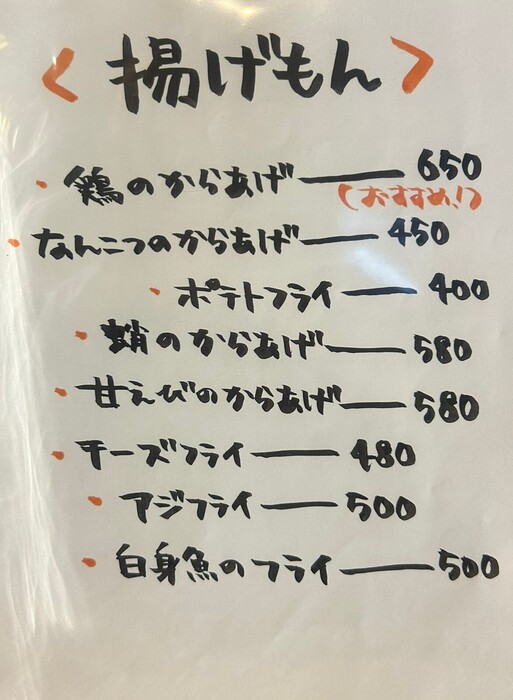 〈 揚げもん 〉
・鶏のからあげ — 650
(おすすめ!)
・なんこつのからあげ — 450
・ポテトフライ — 400
・蛸のからあげ — 580
・甘えびのからあげ — 580
・チーズフライ — 480
・アジフライ — 500
・白身魚のフライ — 500